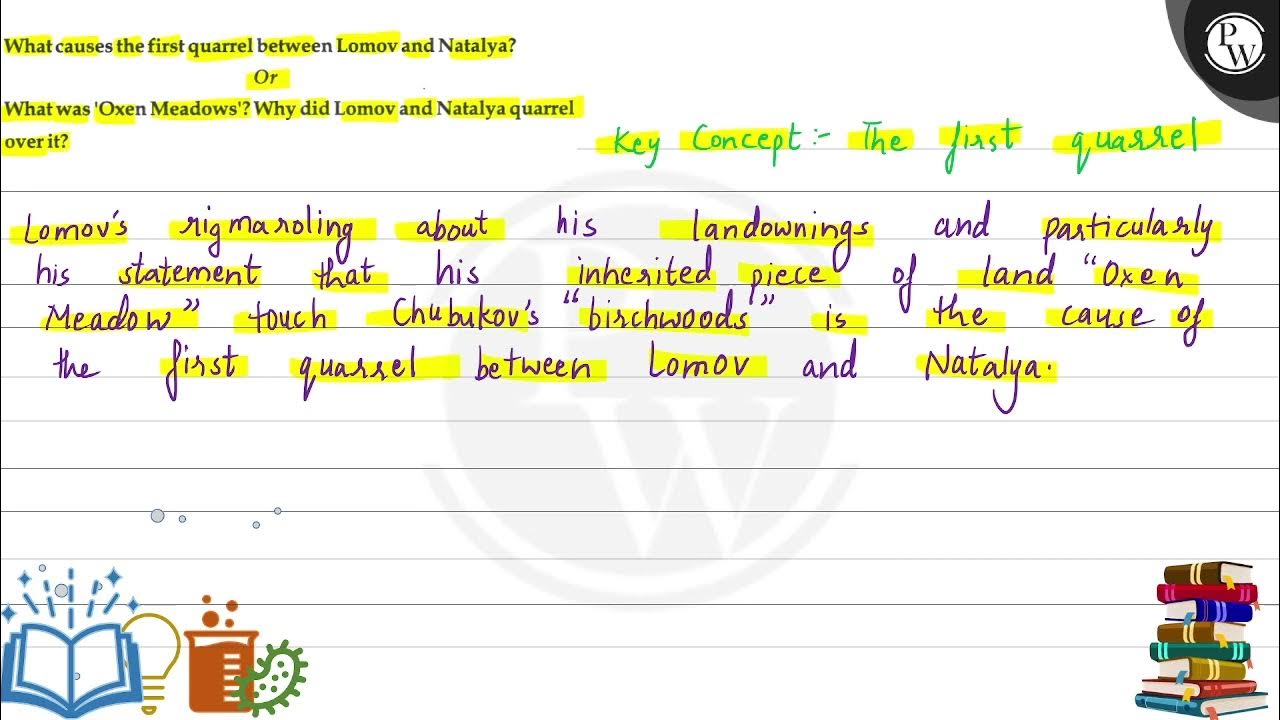 What causes the first quarrel between Lomov and Natalya?
Or
What was 'Oxen Meadows'? Why did Lomov and Natalya quarrel
over it?
Key Concept:- The first quarrel
Lomov's rigmaroling about his landownings and particularly
his statement that his inherited piece of land "Oxen
Meadow" touch Chubukov's "birchwoods" is the cause of
the first quarrel between Lomov and Natalya.
PW
PW